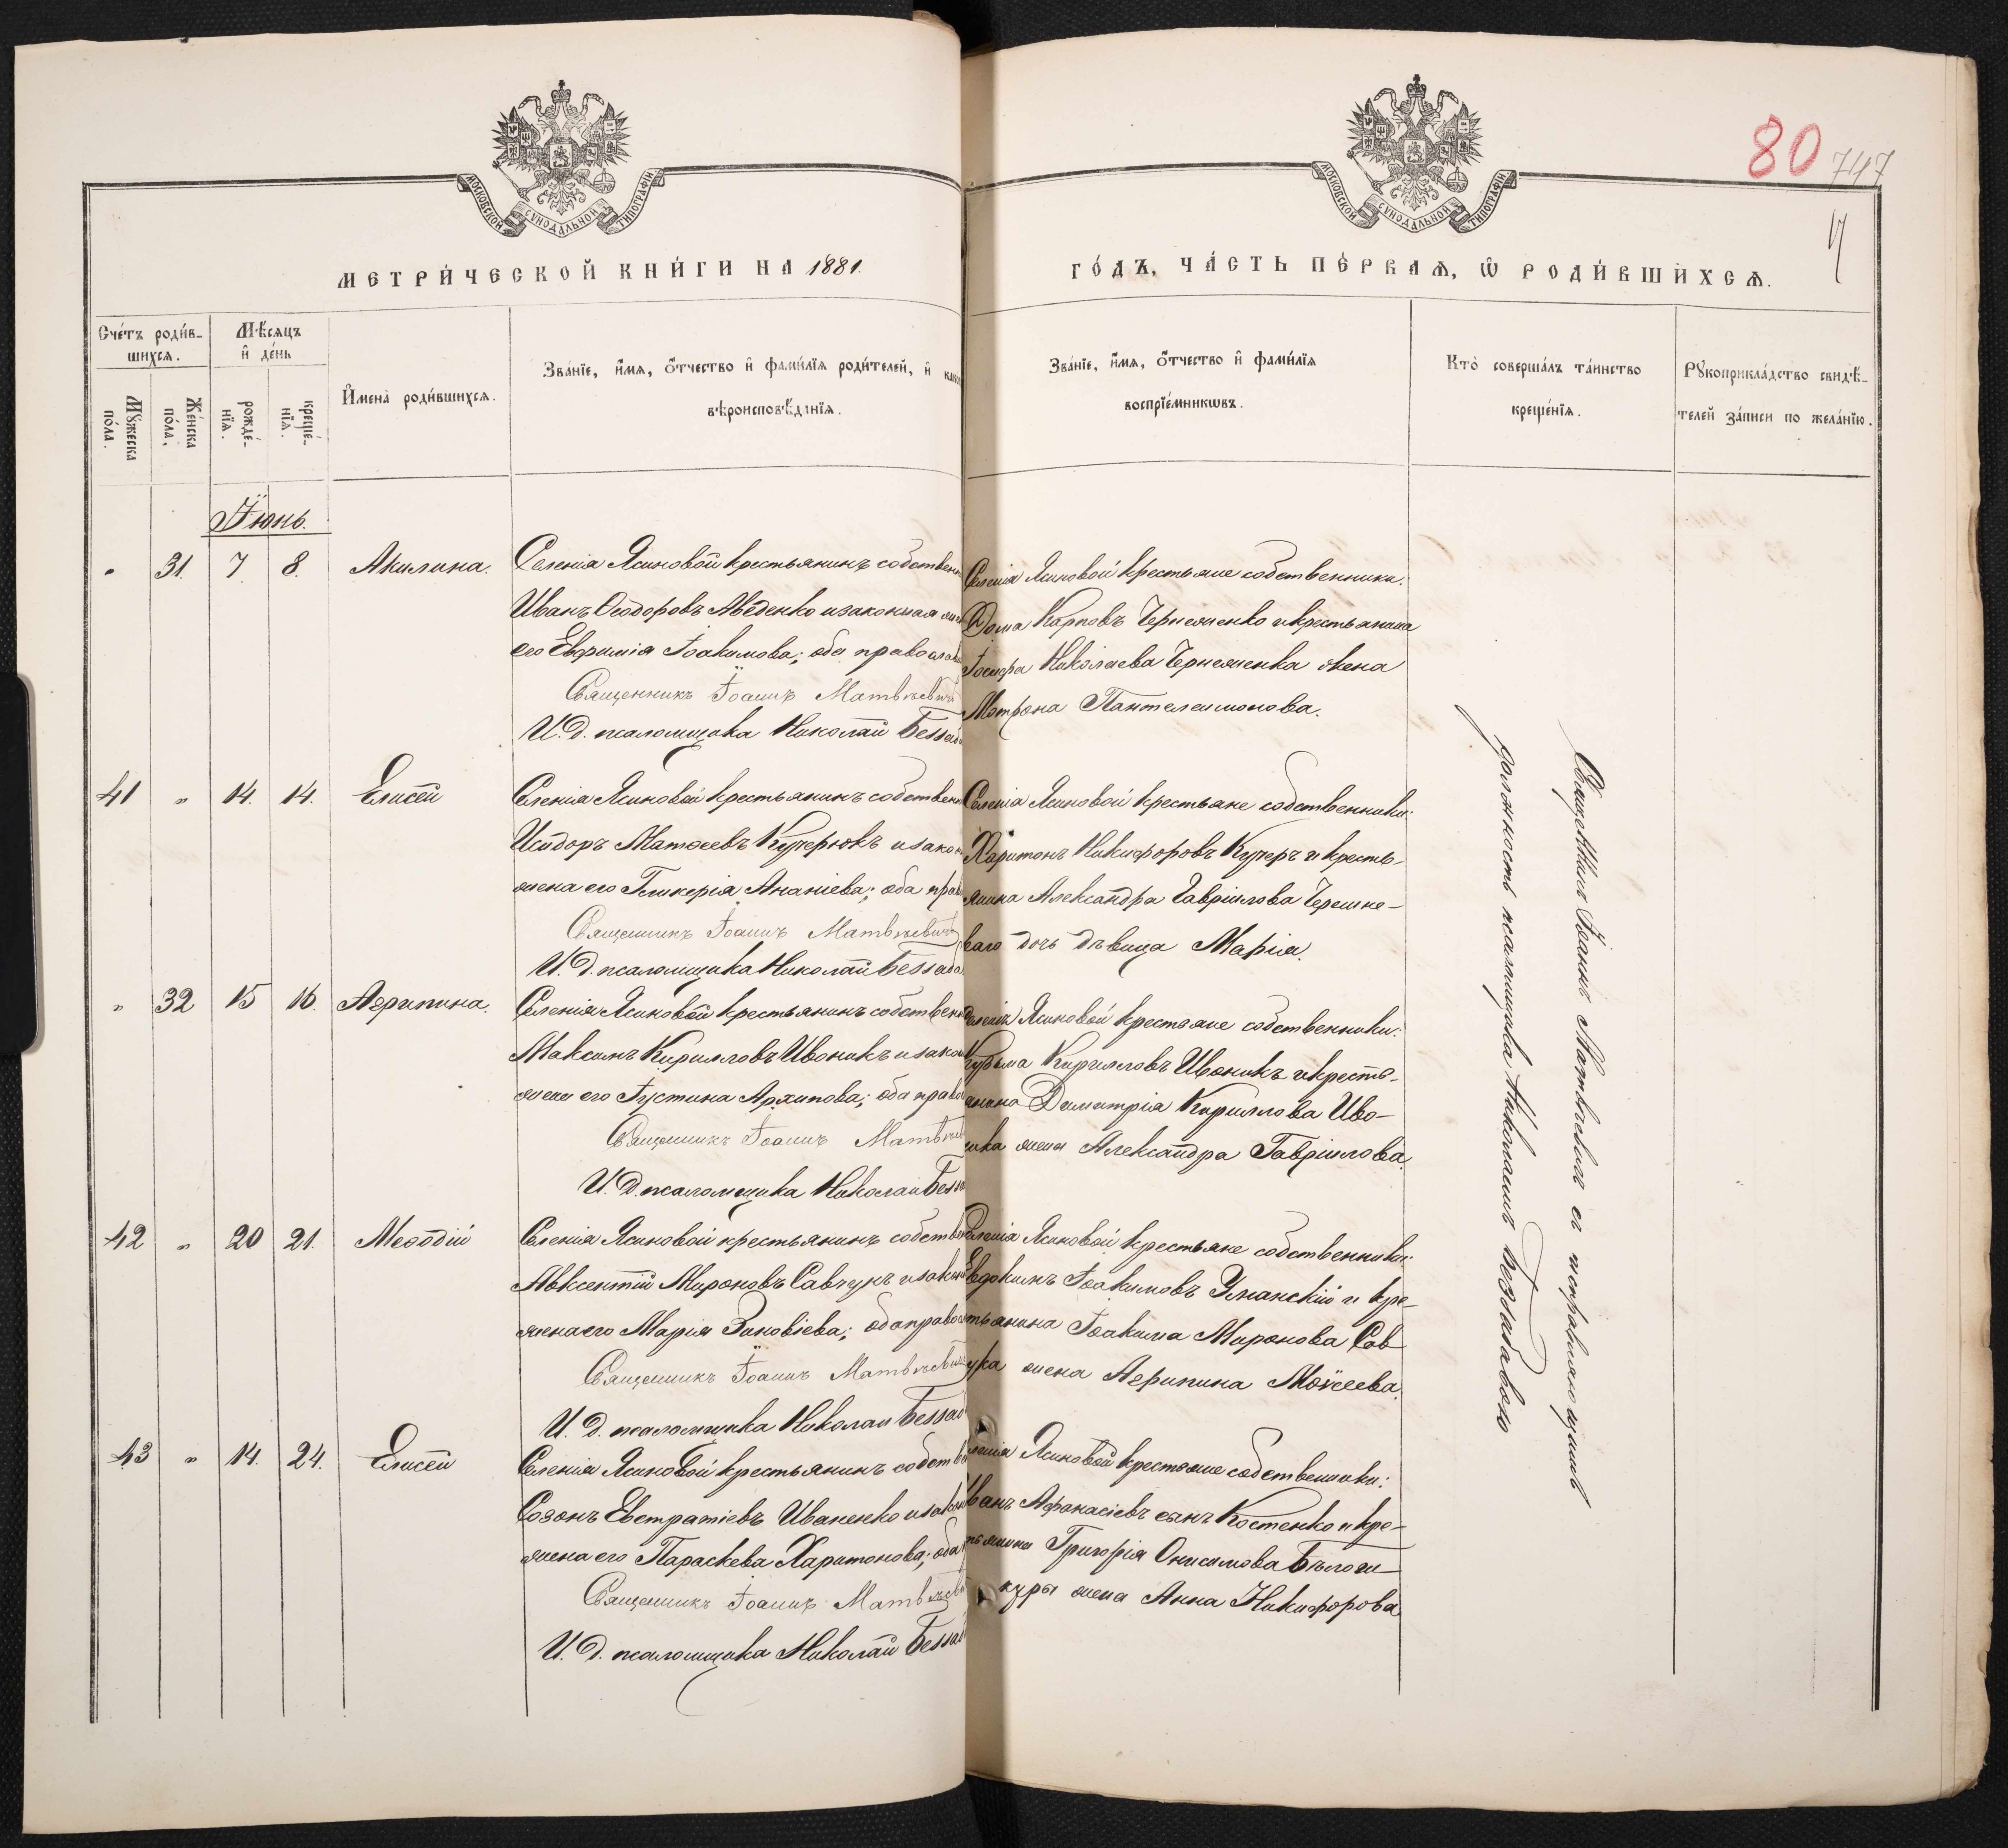 80
747
МОСКОВСКОЙ СУНОДАЛЬНОЙ ТИПОГРАФІИ
МОСКОВСКОЙ СУНОДАЛЬНОЙ ТИПОГРАФІИ
МЕТРИ́ЧЕСКОЙ КНИ́ГИ НА 1881.
ГО́ДЪ, ЧА́СТЬ ПЕ́РВАѦ, Ѡ РОДИ́ВШИХСѦ.
Сче́тъ роди́в-
шихсѧ.
Мѣ́сяцъ
и де́нь
Мꙋ́жеска
по́ла.
Же́нска
по́ла.
рожде́-
нїѧ.
креще́-
нїѧ.
Имена̀ роди́вшихсѧ.
Зва́нїе, и́мѧ, о́тчество и фами́лїѧ роди́телей, и
вѣроисповѣ́данїѧ.
Зва́нїе, и́мѧ, о́тчество и фами́лїѧ
воспрїе́мникѡвъ.
Кто̀ соверша́лъ та́инство
креще́нїѧ.
Рꙋкоприкла́дство свидѣ́-
телей за́писи по жела́нїю.
Іюнь.
„ 31. 7 8. Акилина.
Селенія Ясиновой крестьянинъ собствен
Иванъ Ѳеодоровъ Авѣденко и законная
его Евфимія Іоакимова; оба правосла
Священникъ Іоаннъ Матвѣевичъ
И. Д. псаломщика Николай Безза
Селенія Ясиновой крестьяне собственники:
Ѳома Карповъ Чернеженко и крестьянина
Іосифа Николаева Чернеженка жена
Мотрона Пантелеимонова.
41 „ 14. 14. Елисей
Селенія Ясиновой крестьянинъ собствен
Исидоръ Матѳеевъ Кучерюкъ и закон
жена его Гликерія Ананіева; оба прав
Священникъ Іоаннъ Матвѣевичъ
И. Д. псаломщика Николай Беззаба
Селенія Ясиновой крестьяне собственники:
Харитонъ Никифоровъ Кучеръ и кресть-
янина Александра Гавріилова Черешне-
ваго дочь дѣвица Марія.
„ 32 15 16. Агрипина.
Селенія Ясиновой крестьянинъ собствен
Максимъ Кирилловъ Ивоникъ и закон
жена его Іустина Архипова; оба право
Священникъ Іоаннъ Матвѣе
И. Д. псаломщика Николай Безза
Селенія Ясиновой крестьяне собственники:
Кузьма Кирилловъ Ивоникъ и кресть-
янина Димитрія Кириллова Иво-
ника жена Александра Гавріилова.
42 „ 20 21. Меѳодій
Селенія Ясиновой крестьянинъ собств
Авксентій Мироновъ Савчукъ и закон
жена его Марія Зиновіева; оба правос
Священникъ Іоаннъ Матвѣевич
И. Д. псаломщика Николай Беззаб
Селенія Ясиновой крестьяне собственники:
Евдокимъ Іоакимовъ Уманскій и кре-
стьянина Іоакима Миронова Сав-
чука жена Агрипина Моѵсеева.
43 „ 14. 24. Елисей
Селенія Ясиновой крестьянинъ собств
Созонъ Евстратіевъ Иваненко и закон
жена его Параскева Харитонова; оба
Священникъ Іоаннъ Матвѣев
И. Д. псаломщика Николай Беззаб
Селенія Ясиновой крестьяне собственники:
Иванъ Афанасіевъ сынъ Костенко и кре-
стьянина Григорія Онисимова Бѣлоги-
куры жена Анна Никифорова
Священникъ Іоаннъ Матвѣевичъ съ исправляющимъ
должность псаломщика Николаемъ Беззабавою